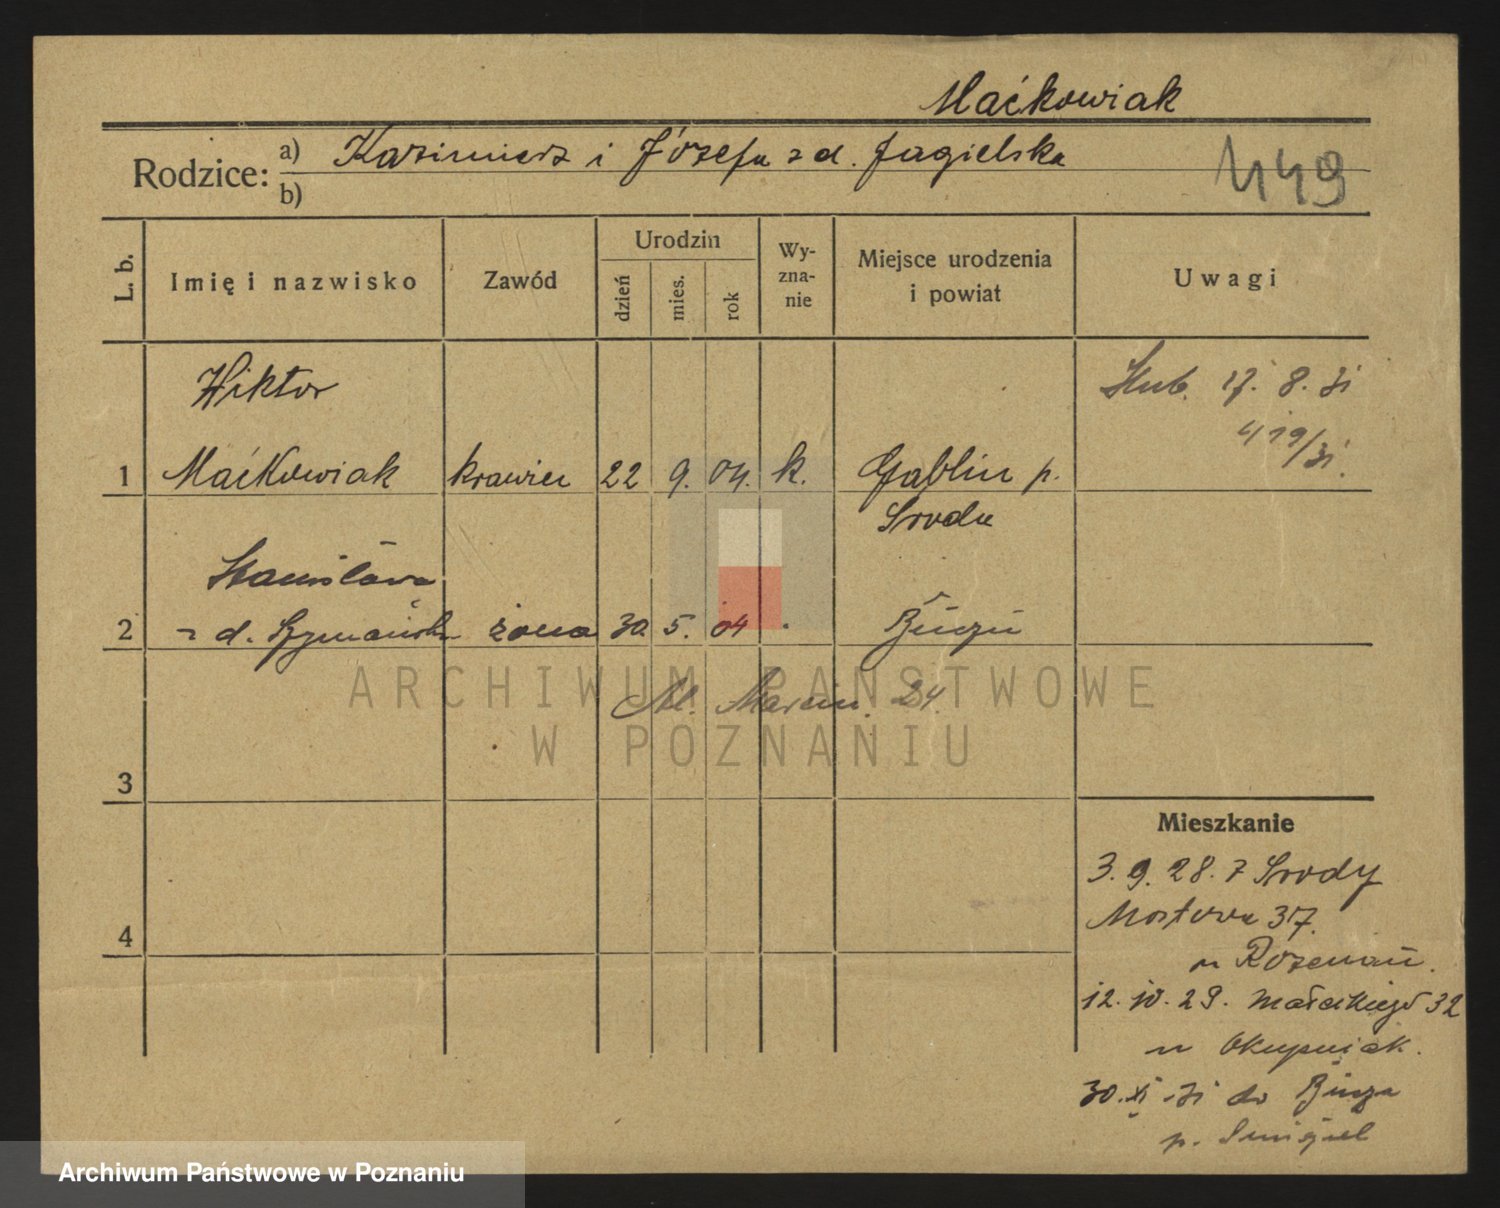 Maćkowiak
Rodzice: a) Kazimierz i Józefa z d. Jagielska
b)
449
L. b.
Imię i nazwisko
Zawód
Urodzin
dzień
mies.
rok
Wy-
zna-
nie
Miejsce urodzenia
i powiat
Uwagi
Wiktor
1 Maćkowiak krawiec 22 9. 04. k. Gablin p.
Środa
Ślub. 17. 8. 31
419/31.
Stanisława
2 z d. Szymańska żona 30. 5. 04 Buczu
Św. Marcin. 24.
3
4
Mieszkanie
3. 9. 28. z Środy
Mostowa 37.
u
12. 10. 29. Małeckiego 32
u Okupniak.
30. XI. 31 do Bucza
p. Śmigiel
ARCHIWUM PAŃSTWOWE
W POZNANIU
Archiwum Państwowe w Poznaniu